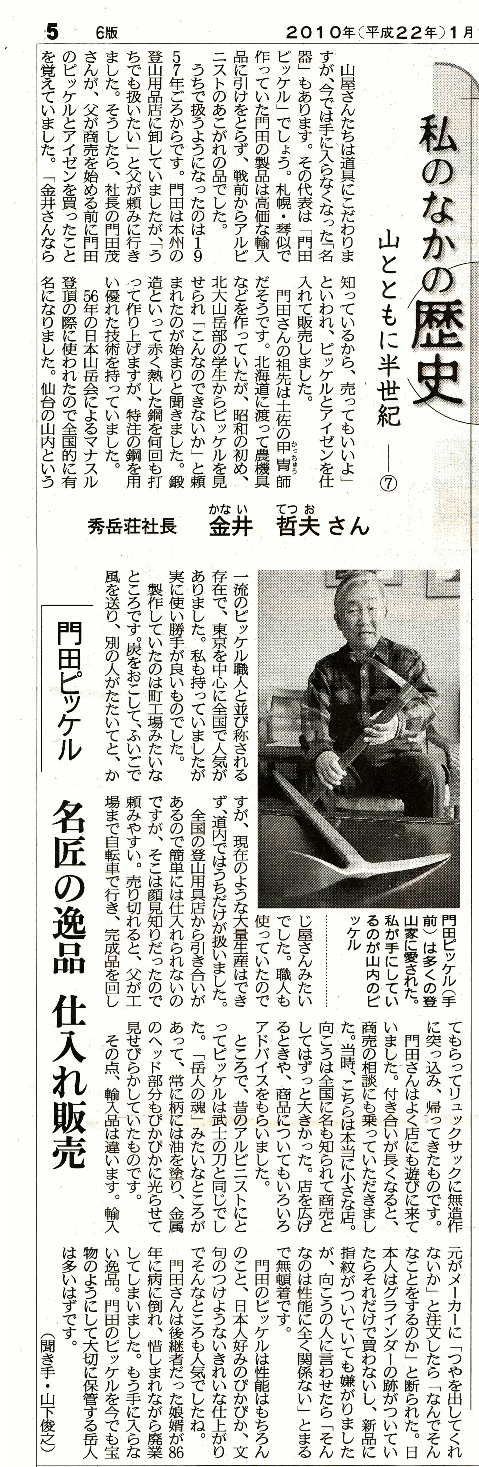 5　6版　2010年（平成22年）1月
私のなかの歴史
山とともに半世紀 ──⑦
秀岳荘社長　金井　哲夫さん
かない　てつお
　山屋さんたちは道具にこだわりま
すが、今では手に入らなくなった「名
器」もあります。その代表は「門田
ピッケル」でしょう。札幌・琴似で
作っていた門田の製品は高価な輸入
品に引けをとらず、戦前からアルピ
ニストのあこがれの品でした。
　うちで扱うようになったのは19
57年ごろからです。門田は本州の
登山用品店に卸していましたが、「う
ちでも扱いたい」と父が頼みに行き
ました。そうしたら、社長の門田茂
さんが、父が商売を始める前に門田
のピッケルとアイゼンを買ったこと
を覚えていました。「金井さんなら
知っているから、売ってもいいよ」
といわれ、ピッケルとアイゼンを仕
入れて販売しました。
　門田さんの祖先は土佐の甲冑師
かっちゅう
だそうです。北海道に渡って農機具
などを作っていたが、昭和の初め、
北大山岳部の学生からピッケルを見
せられ「こんなのできないか」と頼
まれたのが始まりと聞きました。鍛
造といって赤く熱した鋼を何回も打
って作り上げますが、特注の鋼を用
い優れた技術を持っていました。
　56年の日本山岳会によるマナスル
登頂の際に使われたので全国的に有
名になりました。仙台の山内という
門田ピッケル
名匠の逸品　仕入れ販売
一流のピッケル職人と並び称される
存在で、東京を中心に全国で人気が
ありました。私も持っていましたが
実に使い勝手が良いものでした。
　製作していたのは町工場みたいな
ところです。炭をおこして、ふいごで
風を送り、別の人がたたいてと、か
じ屋さんみたい
でした。職人も
使っていたので
すが、現在のような大量生産はでき
ず、道内ではうちだけが扱いました。
　全国の登山用具店から引き合いが
あるので簡単には仕入れられないの
ですが、そこは顔見知りだったので
頼みやすい。売り切れると、父が工
場まで自転車で行き、完成品を回し
門田ピッケル（手
前）は多くの登
山家に愛された。
私が手にしてい
るのが山内のピ
ッケル
てもらってリュックサックに無造作
に突っ込み、帰ってきたものです。
　門田さんはよく店にも遊びに来て
いました。付き合いが長くなると、
商売の相談にも乗っていただきまし
た。当時、こちらは本当に小さな店。
向こうは全国に名も知られて商売と
してはずっと大きかった。店を広げ
るときや、商品についてもいろいろ
アドバイスをもらいました。
　ところで、昔のアルピニストにと
ってピッケルは武士の刀と同じでし
た。「岳人の魂」みたいなところが
あって、常に柄には油を塗り、金属
のヘッド部分もぴかぴかに光らせて
見せびらかしていたものです。
　その点、輸入品は違います。輸入
元がメーカーに「つやを出してくれ
ないか」と注文したら「なんでそん
なことをするのか」と断られた。日
本人はグラインダーの跡がついてい
たらそれだけで買わないし、新品に
指紋がついていても嫌がりました
が、向こうの人に言わせたら「そん
なのは性能に全く関係ない」とまる
で無頓着です。
　門田のピッケルは性能はもちろん
のこと、日本人好みのぴかぴか、文
句のつけようないきれいな仕上がり
でそんなところも人気でしたね。
　門田さんは後継者だった娘婿が86
年に病に倒れ、惜しまれながら廃業
してしまいました。もう手に入らな
い逸品。門田のピッケルを今でも宝
物のようにして大切に保管する岳人
は多いはずです。
（聞き手・山下俊之）